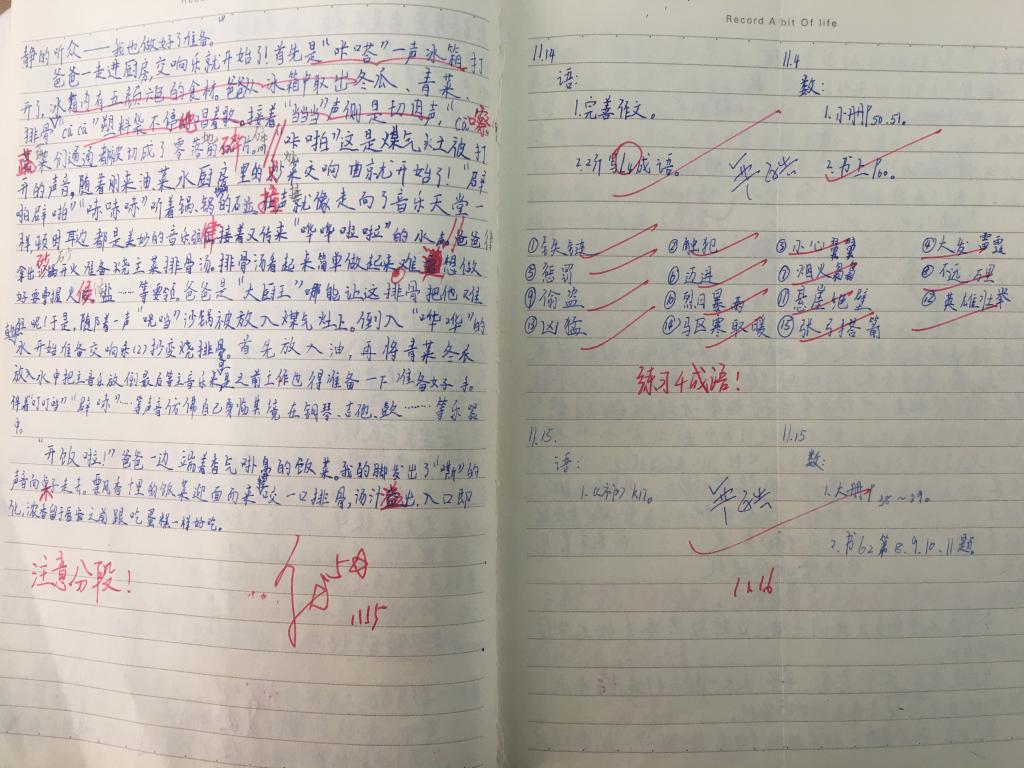 静的听众——我也做好了准备。
爸爸一走进厨房,交响乐就开始了!首先是“咔嗒”一声冰箱打
开了,冰箱内有五颜六色的食材。爸爸从冰箱中取出冬瓜、青菜、
排骨“cā cā”塑料袋不停地唱着歌。接着,“当当”声侧是切切声,“cā 嚓
蔬菜们通通都被切成了零零碎碎片。咔啪”这是煤气灶被打
开的声音。随着刚来油菜水厨房里的交响曲就开始了!“辟
啪辟啪”“咏咏咏”听着锅、锅的撞声就像走向了音乐天堂一
样顿时耳边都是美妙的音乐接着又传来“哗哗啦啦”的水声。爸爸
拿出开火准备烧主菜排骨汤。排骨汤看起来简单做起来难想做
好要掌握火候、盐……等要领。爸爸是“大厨王”哪能让这排骨把他难
住呢!于是,随着一声“咣当”沙锅被放入煤气灶上。倒入“哗哗”的
水开始准备交响乐(2)红烧排骨。首先放入油,再将青菜冬瓜
放入水中把主音乐放倒最后等主音乐来之前工作也得准备一下准备好
伴着“叮叮”“辟咏”……等声音仿佛自己身临其境在钢琴、吉他、鼓……等乐器
中。
“开饭啦!”爸爸一边端着香气扑鼻的饭菜。我的脚发出了“嘶”的
声音向桌子走去。飘香十里的饭菜迎面而来咬一口排骨,汤汁溢出,入口即
化,浓香留于唇齿之间跟吃蛋糕一样好吃。
注意分段!
优 5☆
11.15
Record A bit Of life
11.14
11.4
语:
数:
1.完善作文。
1.小册P50.51。
2.订14成语。
2.书上P60。
①铁链
②触犯
③小心翼翼
④大发雷霆
⑤惩罚
⑥迈进
⑦烟火
⑧不远万里
⑨偷盗
⑩烈日暴雨
⑪悬崖绝壁
⑫英雄壮举
⑬凶猛
⑭驱寒取暖
⑮张弓搭箭
练习4成语!
11.15.
11.15
语:
数:
1.大册P28~29。
2.书62第8.9.10.11题
11.16